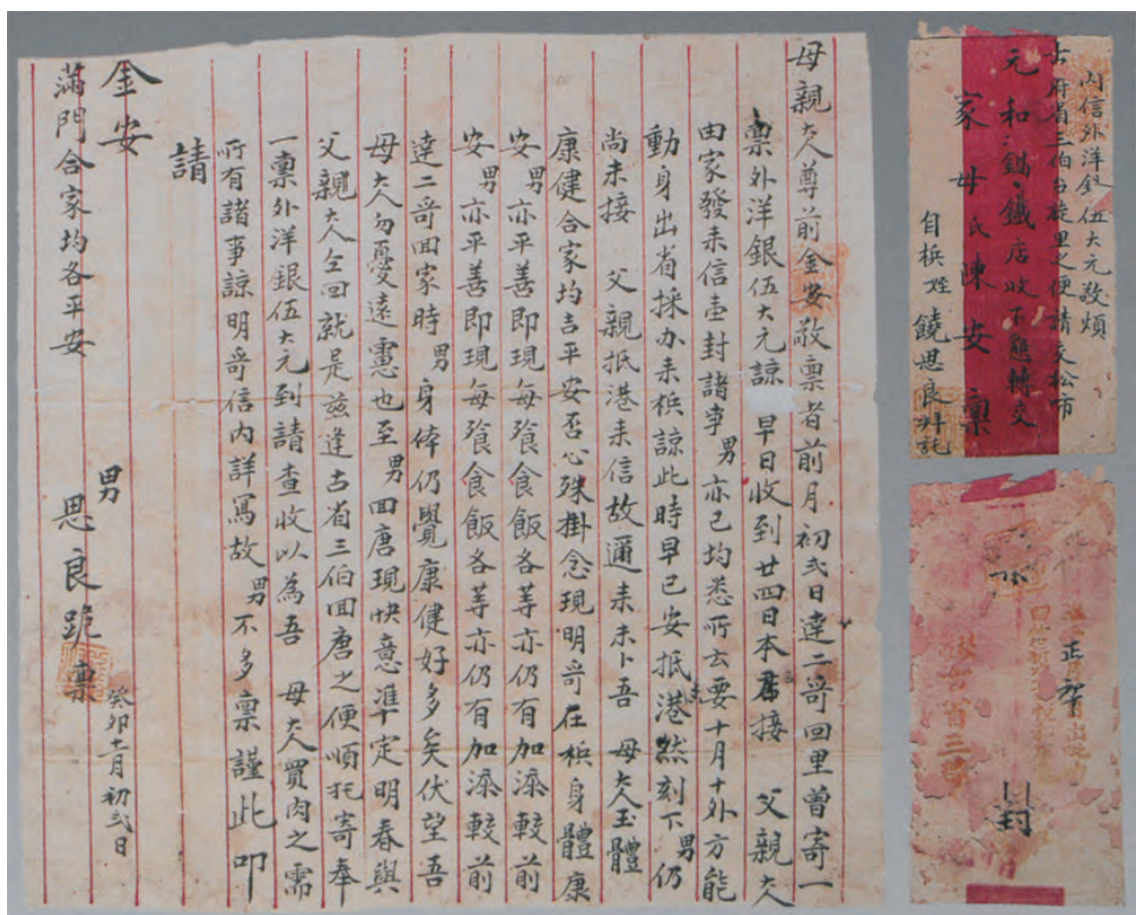 母親大人尊前金安敬禀者前月初弍日達二哥回里曾寄一
禀外洋銀伍大元諒早日收到廿四日本接 父親大
由家發來信壹封諸事男亦已均悉所云要十月十外方能
動身出省採办来梹諒此時早已安抵港然刻下男仍
尚未接 父親抵港来信故邇来未卜吾 母大人玉體
康健合家均吉平安否心殊掛念現明哥在梹身體康
安男亦平善即現每飡食飯各等亦仍有加添較前
安男亦平善即現每飡食飯各等亦仍有加添較前
達二哥回家時男身体仍覺康健好多矣伏望吾
母大人勿憂遠慮也至男回唐現快意準定明春與
父親大人仝回就是兹逢古省三伯回唐之便順托寄奉
一禀外洋銀伍大元到請查收以為吾 母大人買肉之需
所有諸事諒明哥信内詳寫故男不多禀謹此叩
請
金安
滿門合家均各平安
男思良跪禀
癸卯十一月初弍日
内信外洋銀伍大元敬煩
古府省三伯台旋里之便請交松市
元和鐵店收下懇轉交
家母氏陳安禀
自梹姓饒思良拜託
正
封